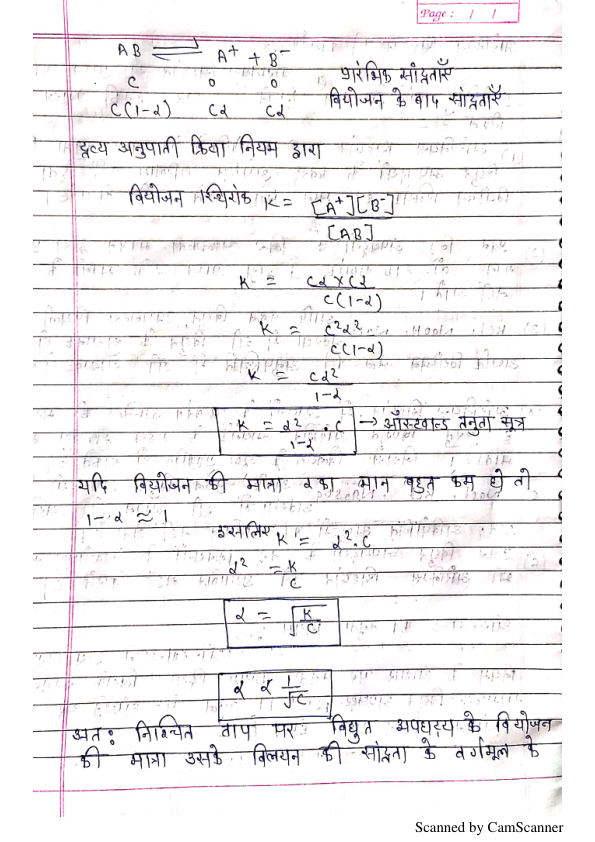 Page : / /
AB ⇌ A⁺ + B⁻
C 0 0 प्रारंभिक सांद्रताएँ
C(1-α) Cα Cα वियोजन के बाद सांद्रताएँ
द्रव्य अनुपाती क्रिया नियम द्वारा
वियोजन स्थिरांक K = [A⁺][B⁻] / [AB]
K = Cα × Cα / C(1-α)
K = C²α² / C(1-α)
K = Cα² / 1-α
K = α² / 1-α · C → ऑस्टवाल्ड तनुता सूत्र
यदि वियोजन की मात्रा α का मान बहुत कम हो तो
1-α ≈ 1
इसलिए K = α² · C
α² = K / C
α = √K/C
α ∝ 1/√C
अतः निश्चित ताप पर विद्युत अपघट्य के वियोजन
की मात्रा उसके विलयन की सांद्रता के वर्गमूल के
Scanned by CamScanner